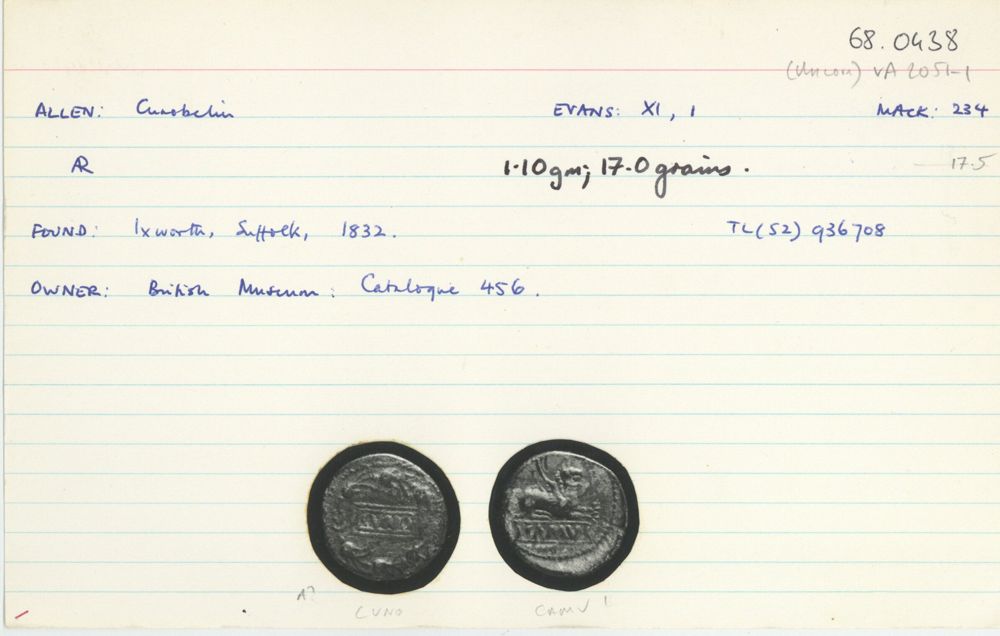 68.0438
(Uncon) VA 2051-1
ALLEN: Cunobelin EVANS: XI, 1 MACK: 234
AR 1.10gm; 17.0 grains. 17.5
FOUND: Ixworth, Suffolk, 1832. TL(52) 936708
OWNER: British Museum: Catalogue 456.
A?
CUNO CAMU 1